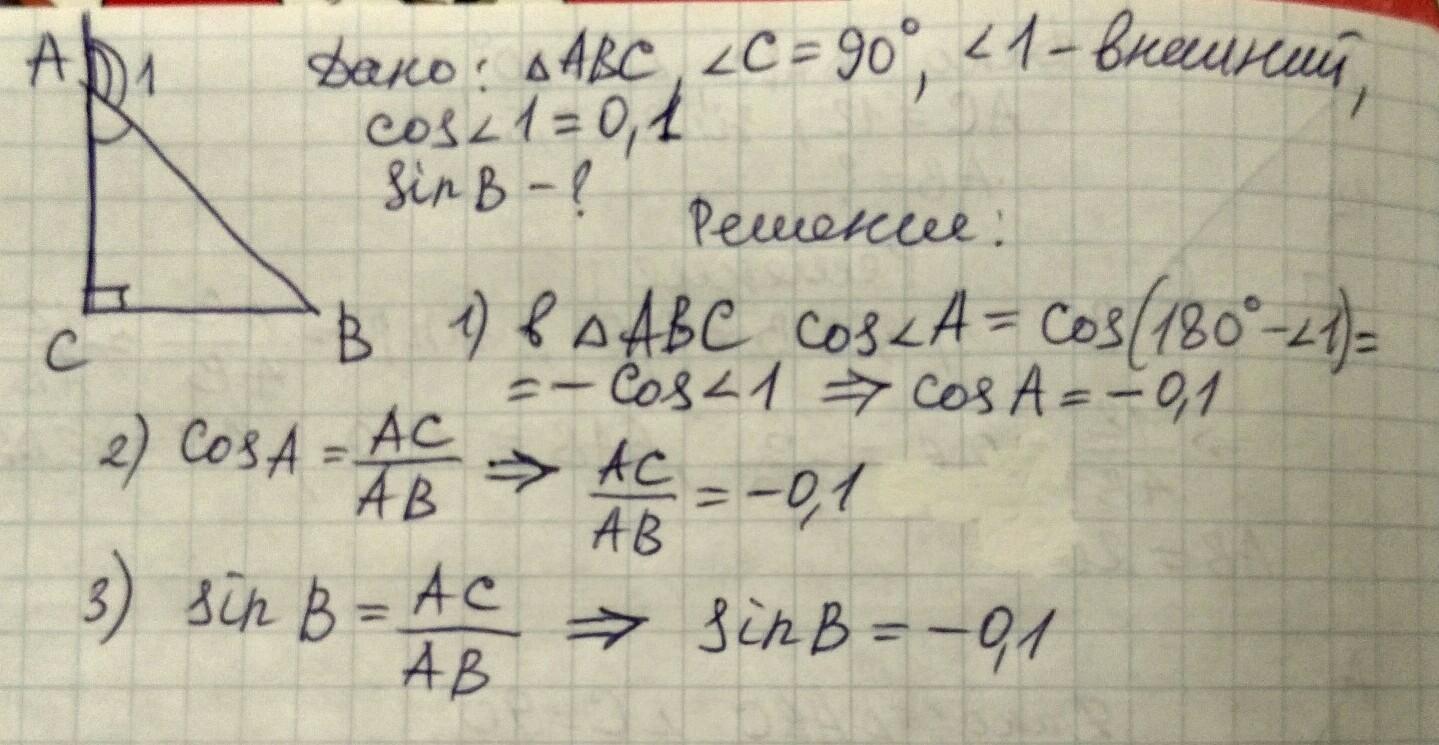 A 1 Дано: △ABC, ∠C = 90°, ∠1 – внешний,
cos∠1 = 0,1
sin B – ?
Решение:
C B 1) в △ABC cos∠A = cos(180° – ∠1) =
= – cos∠1 ⇒ cos A = – 0,1
2) cos A = AC/AB ⇒ AC/AB = –0,1
3) sin B = AC/AB ⇒ sin B = –0,1